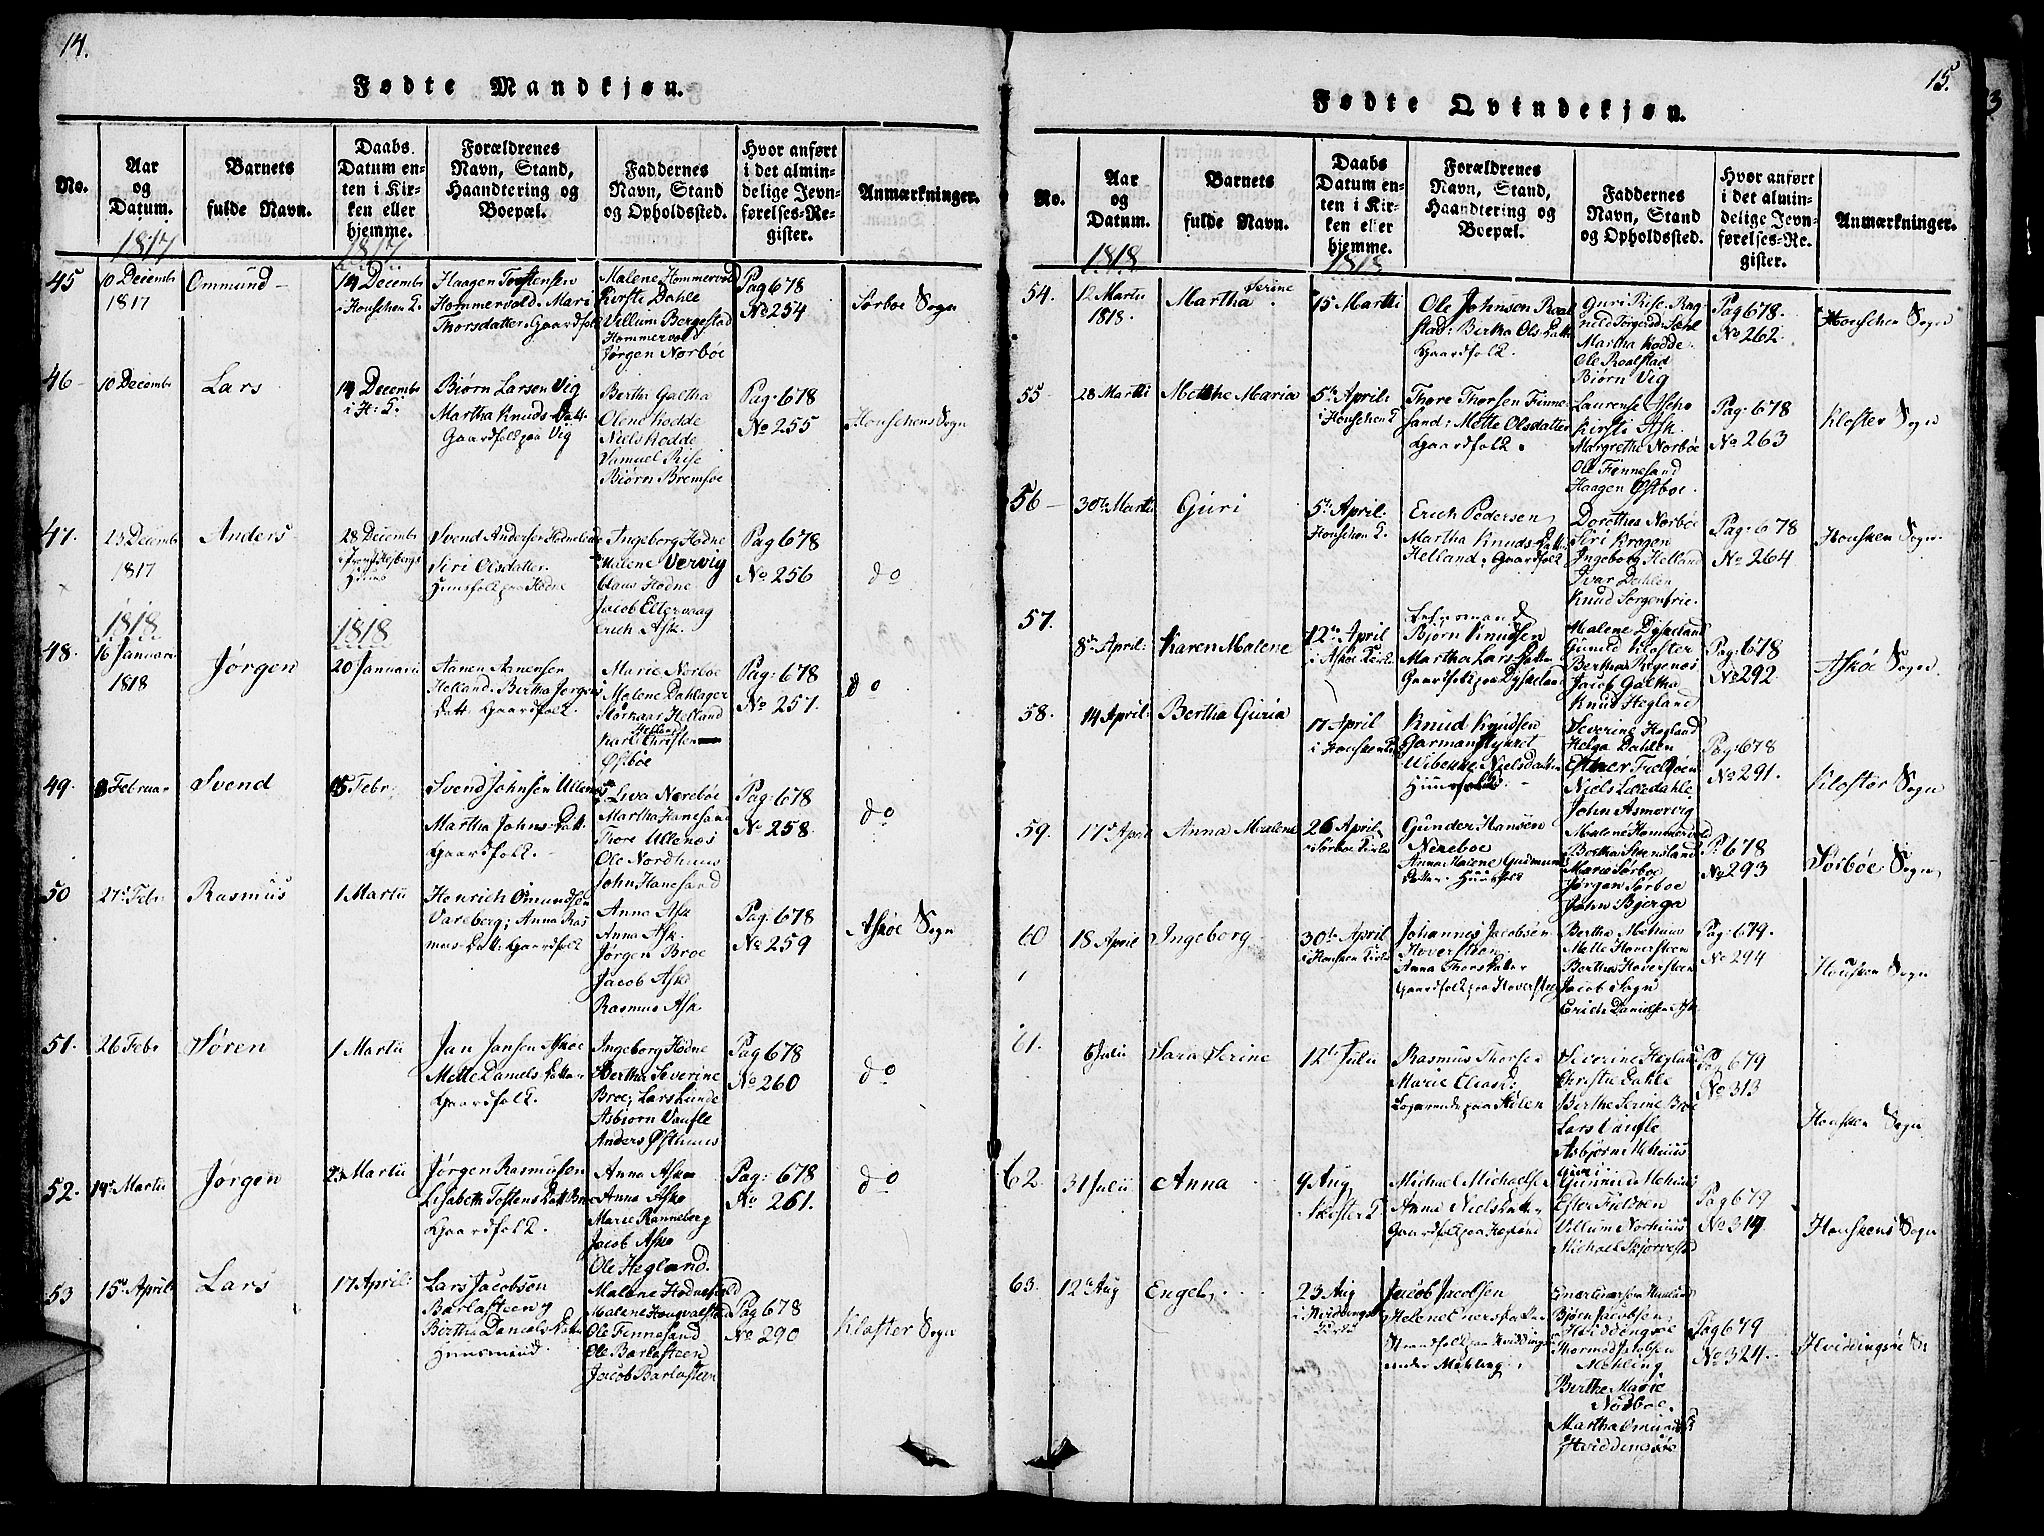 14.
Fødte Mandkjøn.
No.
Aar
og
Datum.
Barnets
fulde Navn.
Daabs
Datum en-
ten i Kir-
ken eller
hjemme.
Forældrenes
Navn, Stand,
Haandtering og
Boepæl.
Faddernes
Navn, Stand
og Opholdssted.
Hvor anført
i det almin-
delige Jevn-
førelses-Re-
gister.
Anmærkninger.
1817
1817
45
10 Decembr
1817
Ommund
14 Decembr
Haagen Tostensen
Hommervold. Mari
Thorsdatter. Gaardfolk
Malene Hommervold
Kirsti Dahle
Villum Bergestad
Hommervold
Jørgen Norbøe
Pag 678
No 254
Sørboe Sogn
46
10 Decembr
Lars
14 Decembr
i H: K.
Biørn Larsen Vig
Martha Knuds Datt.
Gaardfolk paa Vig
Bertha Galtha
Olene Hodde
Niels Hodde
Samuel Rise
Biørn Bremsøe
Pag: 678
No 255
Houschens Sogn
47.
23 Decembr
1817
Anders
28 Decembr
Svend Andersen
Siri Olsdatter
Huusfolk paa Hodne
Ingeborg Hodne
Malene Vervig
Claus Hodne
Jacob Eltervaag
Erich Ask.
Pag 678
No 256
do
1818
1818
48.
16 Januari
1818
Jørgen
20 Januarii
Asnen Asnensen
Helland. Bertha Jørgens
Datt. Gaardfolk.
Marie Norboe
Malene Dahlager
Størkaar Helland
Karl Christen
Østbøe
Pag: 678
No 257.
do
49.
8 Februar
Svend
15 Febr:
Svend Johnsen Ullenes
Martha Johns Datt.
Gaardfolk.
Liva Norebøe
Martha Hanesand
Thore Ullenes
Ole Nordhuus
John Hanesand
Pag: 678
No 258
do
50
27 Febr
Rasmus
1 Martii
Henrich Omundsen
Vareberg; Anna Ras
mus Datt. Gaardfolk
Anna Ask
Anna Ask.
Jørgen Broe
Jacob Aske
Rasmus Ask
Pag: 678
No 259
Askøe Sogn
51.
26 Febr
Søren
1 Martii
Jan Jansen Askøe
Mette Daniels Datter
Gaardfolk.
Ingeborg Hodne
Bertha Severine
Broe; Lars Lunde
Asbiorn Vaufle
Anders Østhuus
Pag 678
No 260
do
52.
14 Martii
Jørgen
23 Martii
Jørgen Rasmussen
Lisabeth Tostens Datt. Broe
Gaardfolk.
Anna Askøe
Anna Askø
Marie Ranneberg
Jacob Askø
Ole Hegland.
Pag: 678
No 261.
do
53
15 April
Lars
17 April:
Lars Jacobsøn
Barlasteen
Bertha Daniels Datter
Huusmand.
Malene Hodnefield
Malene Hougvalestad
Ole Finnesand
Ole Barlasteen
Jacob Barlasteen
Pag 678
No 290
Kloster Sogn
15.
Fødte Qvindekjøn.
No.
Aar
og
Datum.
Barnets
fulde Navn.
Daabs
Datum en-
ten i Kir-
ken eller
hjemme.
Forældrenes
Navn, Stand,
Haandtering og
Boepæl.
Faddernes
Navn, Stand
og Opholdssted.
Hvor anført
i det almin-
delige Jevn-
førelses-Re-
gister.
Anmærkninger.
1818
1818
54.
12 Martii
1818.
Martha Serine
15 Martii
Ole Johnson Roal
stad; Bertha Ols Datt
Gaardfolk.
Guri Rise. Rag
nild Torgersd: Sæhl
Martha Hodde
Ole Roalstad
Biørn Vig
Pag 678.
No 262
Houschen Sogn
55
28 Martii
Mette Maria
5 April:
i Houschen K
Thore Thorsen Finne
sand; Mette Olsdatter
Gaardfolk.
Laurense Askø
Kirsti Ask
Margrethe Norbøe
Ole Finnesand
Haagen Østbøe
Pag: 678
No 263
Kloster Sogn
56
30 Martii
Guri
5 April:
Houschen K.
Erich Pedersen
Martha Knuds Datter
Helland; Gaardfolk
Dorothea Norbøe
Siri Krogen
Ingeborg Helland
Ivar Dahlen
Knud Sorgenfrie.
Pag: 678
No 264
Housken Sogn
57.
8 April:
Karen Malene
12 April
i Askøe Kirke
Bjørn Knudsen
Martha Lars Datter
Gaardfolk paa Dyskeland
Malene Dyskeland
Gunild Kloster
Bertha Regenes
Jacob Galtha
Knud Hegland
Pag: 678
No 292
Askøe Sogn
58.
14 April:
Bertha Guria
17 April
Knud Knudsen
Garmanstykket
Wibecke Nielsdatter
Huusfolk
Severine Hegland
Helga Dahlen
Esther Fieldøen
Niels Læredahle
John Asmervig
Pag: 678
No 291.
Kloster Sogn
59.
17 April
Anna Malene
26 April
i Sørboe Kirke
Gunder Hansen
Nereboe
Anna Malene Gudmunds
Datter. Huusfolk
Malene Hommervold
Bertha Steensland
Maria Sørboe
Jørgen Sørboe
John Bjerga
P: 678
No 293
Sørbøe Sogn
60
18 April
Ingeborg
30 April
i Housken Kirke
Johannes Jacobsøn
Hoversteen
Anna Thors Datter
Gaardfolk paa Hoversteen
Bertha Mehuus
Mette Hoversteen
Bertha Hoversteen
Jacob Sogn
Erich Danielsen Ask
Pag: 679.
No 294
Housken Sogn
61.
6 Julii
Sara Serine
12 Julii
Rasmus Thorsen
Marie Eliasd:
Logerende paa Skilen
Severine Hegland
Christie Dahle
Berthe Serine Broe
Lars Vaufle
Asbjørn Mehuus
Pag 679
No 313
Housken Sogn
62.
31 Julii
Anna
9 Aug
Kloster K
Michael Michaelsen
Anna Niels Datter
Gaardfolk paa Hegland
Guri
Gunnild Mehuus
Ester Fieldøen
Villum Norhuus
Michael Skjørvestad
Pag 679
No 314
Houskens Sogn
63.
12 Aug
Engel
23 Aug
i Hviddingsøe
Kirke
Jacob Jacobsen
Helene Eners Datter
Strandfolk paa Hviddingsøe
under Mehling.
Enert Enertsen Huusland
Bjørn Jacobsen
Hviddingsøe
Thormod Jstabsen
Mehling
Berthe Marie
Norboe.
Martha Omunds D
Hviddingsøe
Pag 679
No 324
Hviddingsøe Sn